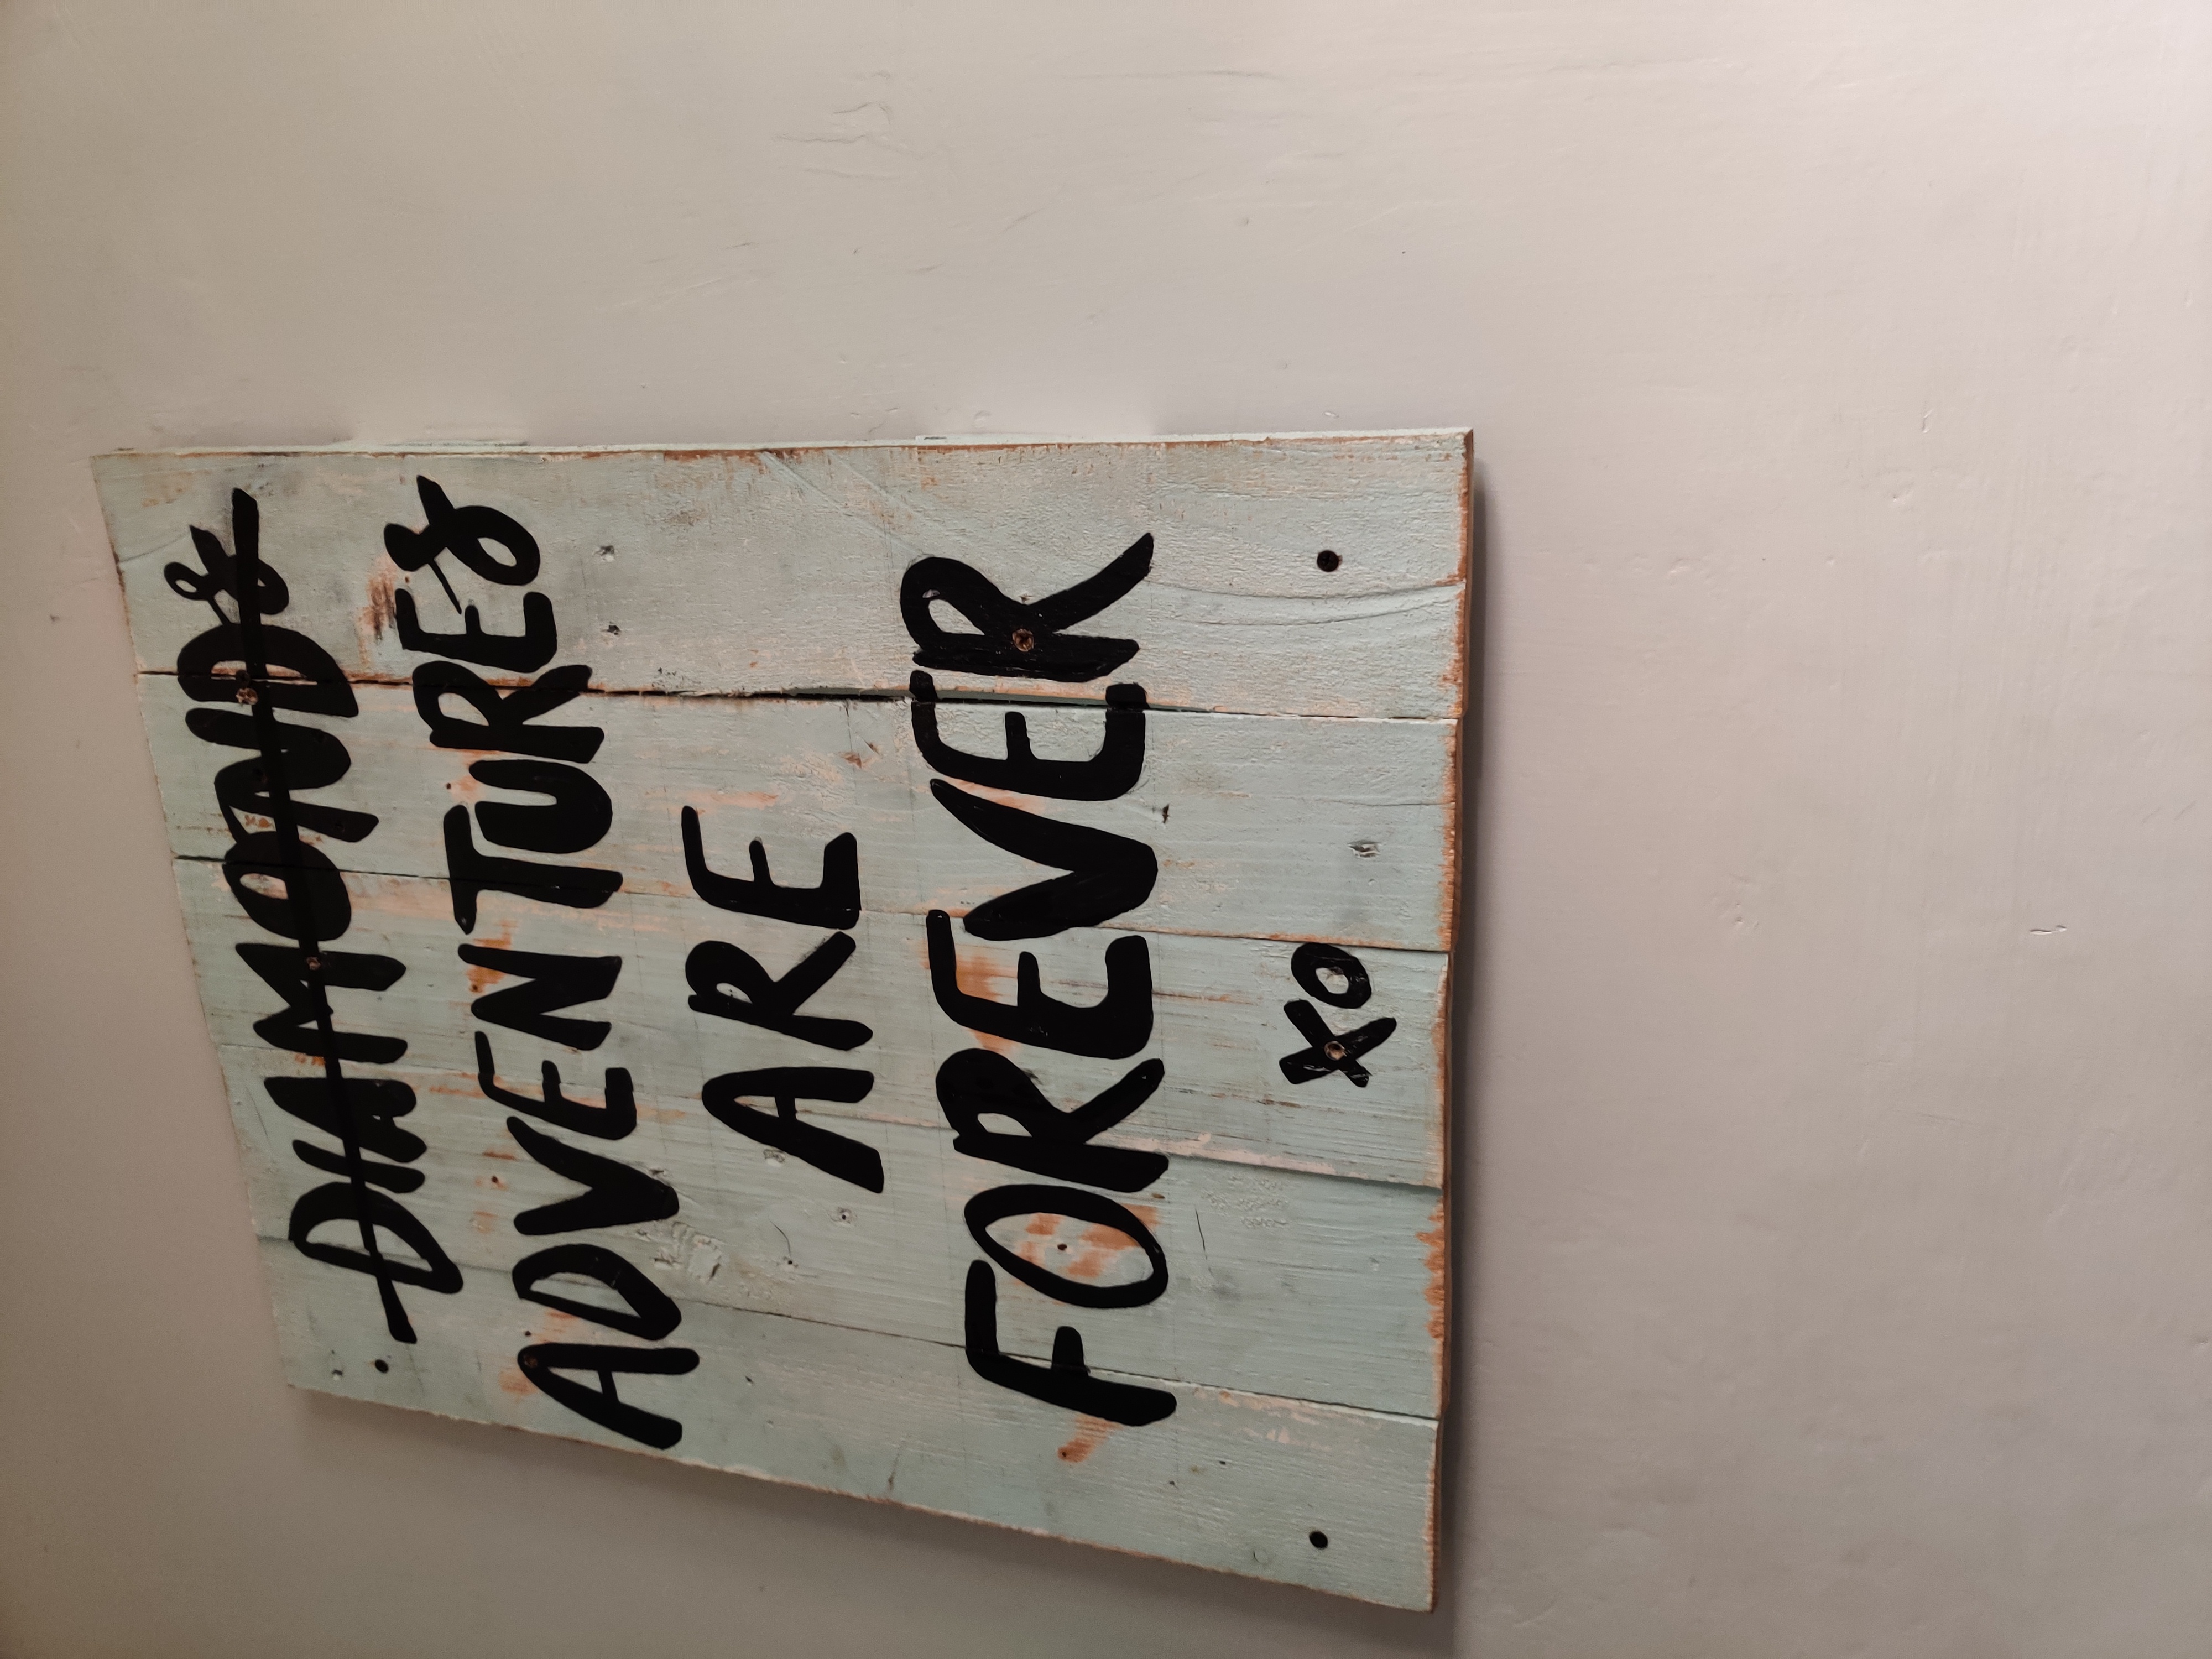 DIAMONDs
ADVENTUREs
ARE
FOREVER
XO